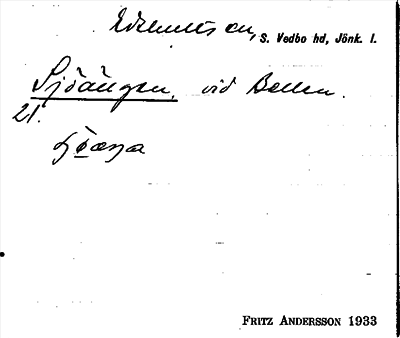 Edshults sn, S. Vedbo hd, Jönk. l.
Sjöängen, vid Bellen.
21.
FRITZ ANDERSSON 1933